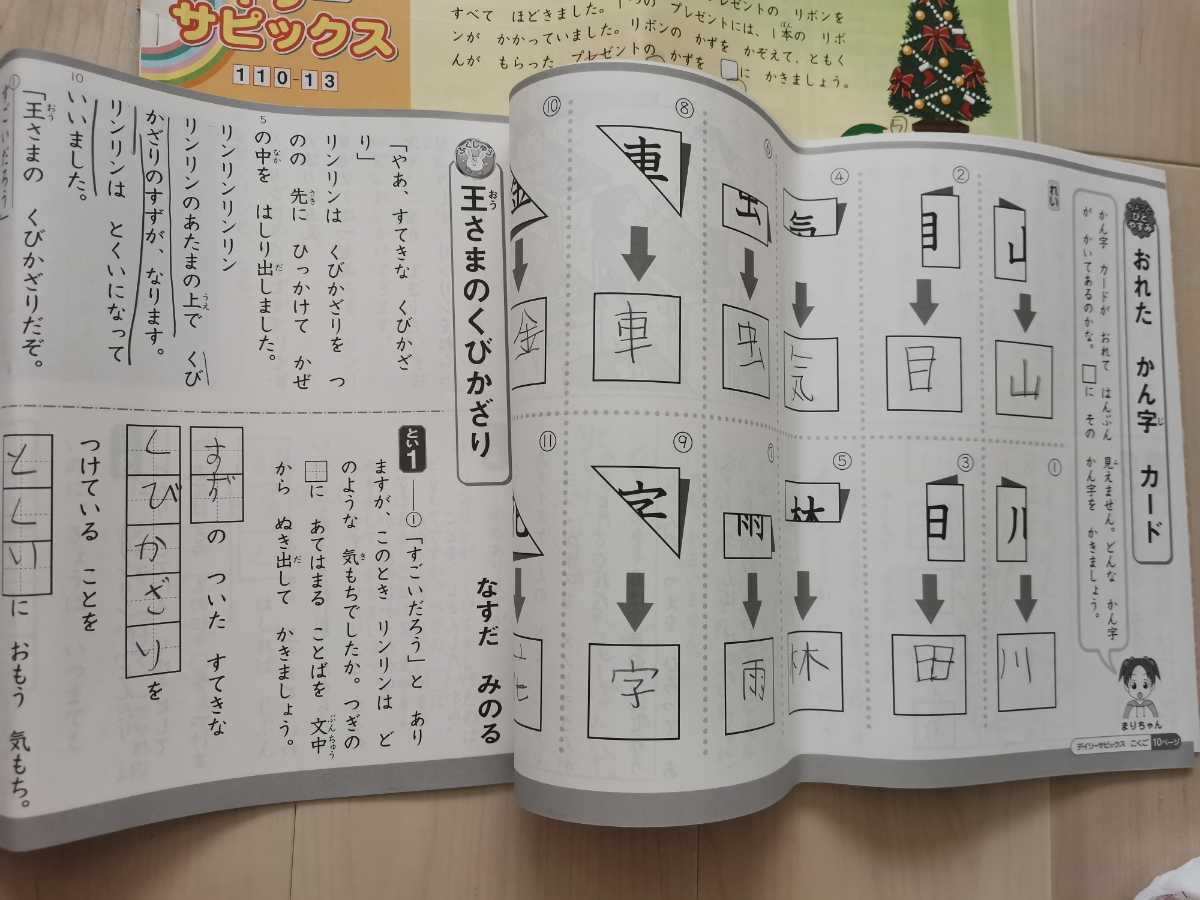 サピックス
110-13
プレゼントの リボンを
すべて ほどきました。1つの プレゼントには、1本の リボ
ンが かかっていました。リボンの かずを かぞえて、ともく
んが もらった プレゼントの かずを □に かきましょう。
おれた かん字 カード
かん字 カードが おれて はんぶん 見えません。どんな かん字
が かいてあるのかな。□に その かん字を かきましょう。
まりちゃん
デイリーサピックス こくご 10ページ
れい
山
①
川
②
目
③
田
④
気
⑤
林
虫
雨
⑧
車
⑨
字
⑩
金
⑪
王さまのくびかざり
なすだ みのる
「やあ、すてきな くびかざ
り」
リンリンは くびかざりを つ
のの 先に ひっかけて かぜ
5
の中を はしり出しました。
リンリンリンリン
リンリンのあたまの上で くび
かざりのすずが、なります。
リンリンは とくいになって
いいました。
10
「王さまの くびかざりだぞ。
①すごいだろう」
とい1
①「すごいだろう」と あり
ますが、このとき リンリンは ど
のような 気もちでしたか。つぎの
□に あてはまる ことばを 文中
から ぬき出して かきましょう。
すずの ついた すてきな
くびかざりを
つけている ことを
とくいに おもう 気もち。